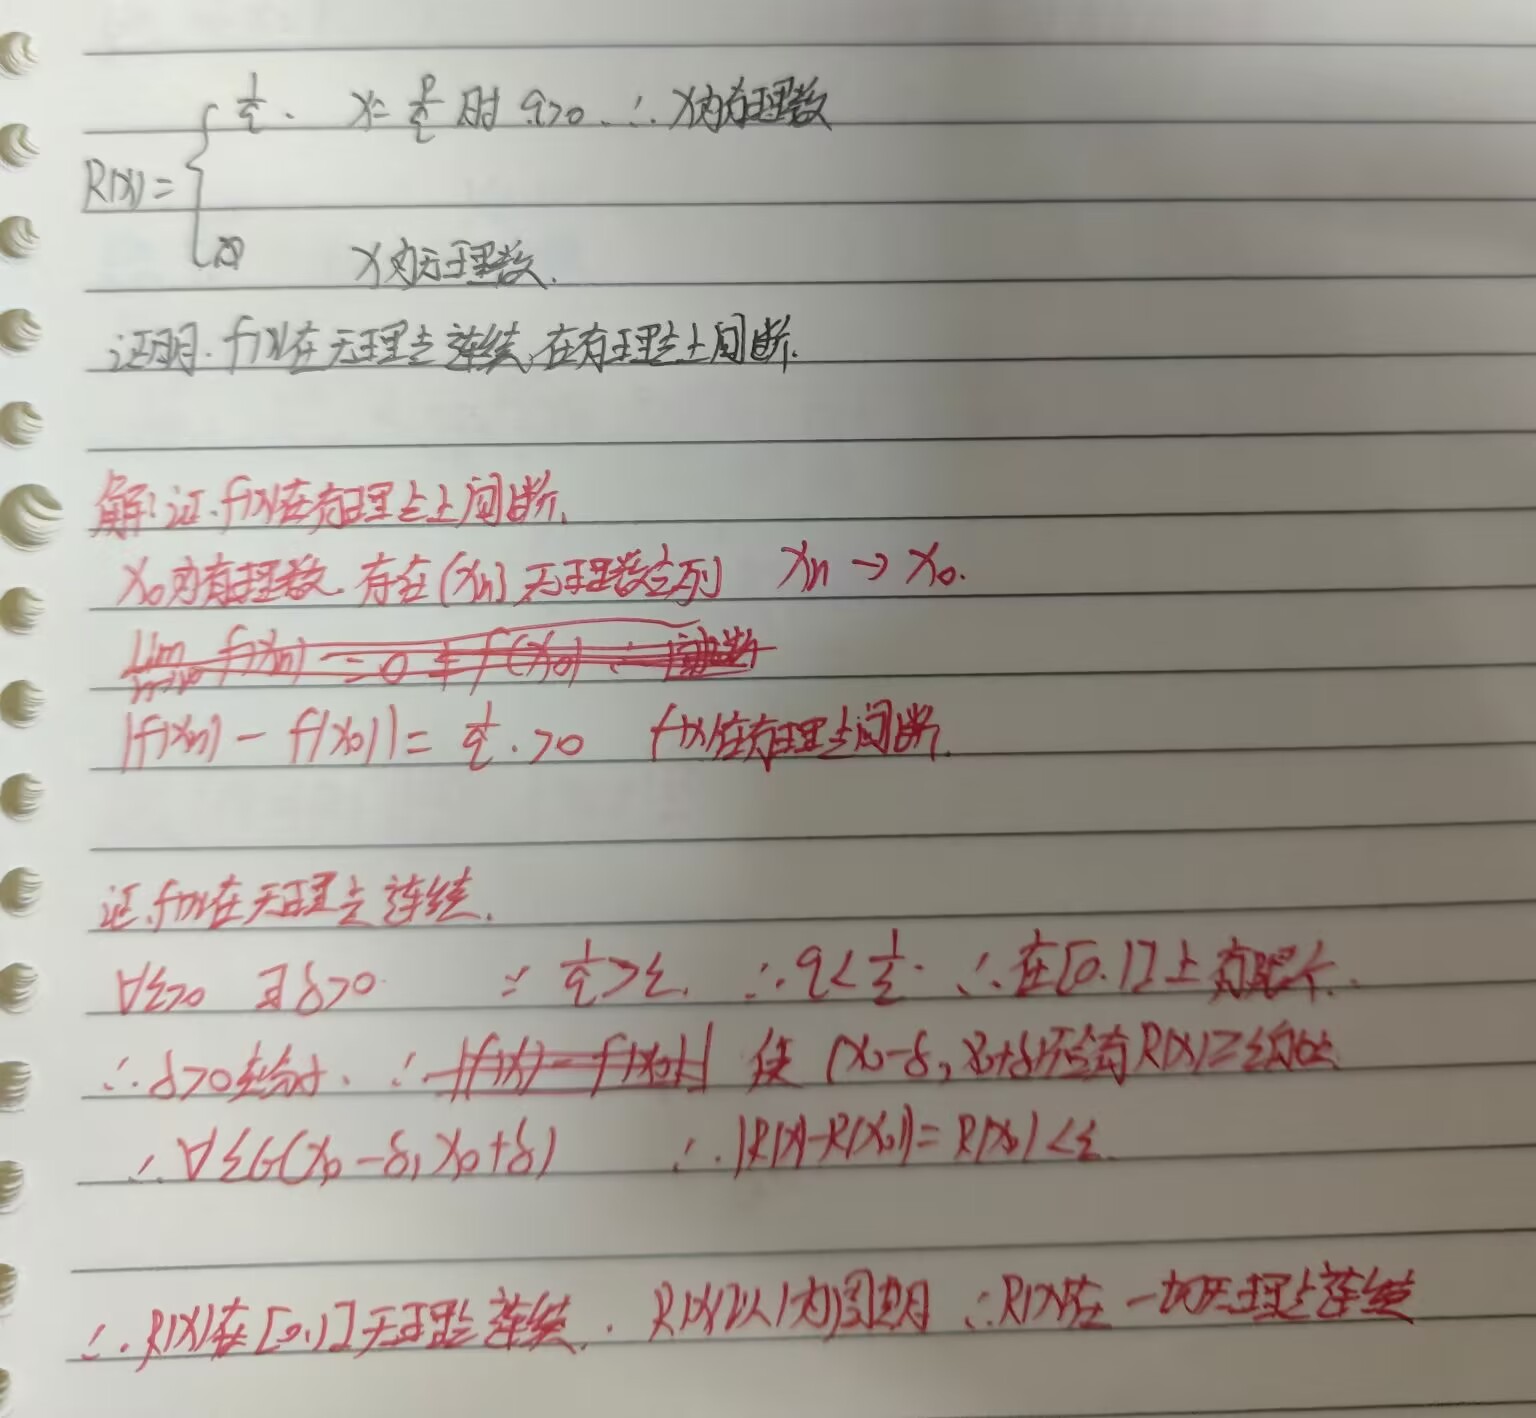 R(x)= { 1/q . x= p/q 时 q>0 ∴ x为有理数
0 x为无理数.
证明. f(x)在无理点连续,在有理点上间断.
解:证.f(x)在有理点上间断.
x₀为有理数.存在{xₙ}无理数点列 xₙ → x₀.
lim n→∞ f(xₙ) = 0 ≠ f(x₀) ∴ 间断
|f(xₙ) - f(x₀)| = 1/q . >0 f(x)在有理点间断.
证.f(x)在无理点连续.
∀ε>0 ∃δ>0 ∵ 1/q >ε. ∴q< 1/ε. ∴在[0.1]上有限个.
∴δ>0 ∴ |f(x) - f(x₀)| 使 (x₀-δ, x₀+δ)不含有R(x)≥ε的点
∴∀ε∈(x₀-δ, x₀+δ) ∴.|R(x)-R(x₀)|= R(x₀) <ε.
∴.R(x)在[0.1]无理点连续. R(x)以1为周期 ∴R(x)在一切无理点连续